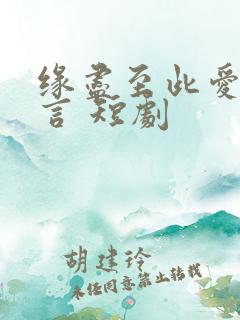 缘尽至此爱
言 短劇
胡建玲
未经同意禁止转载